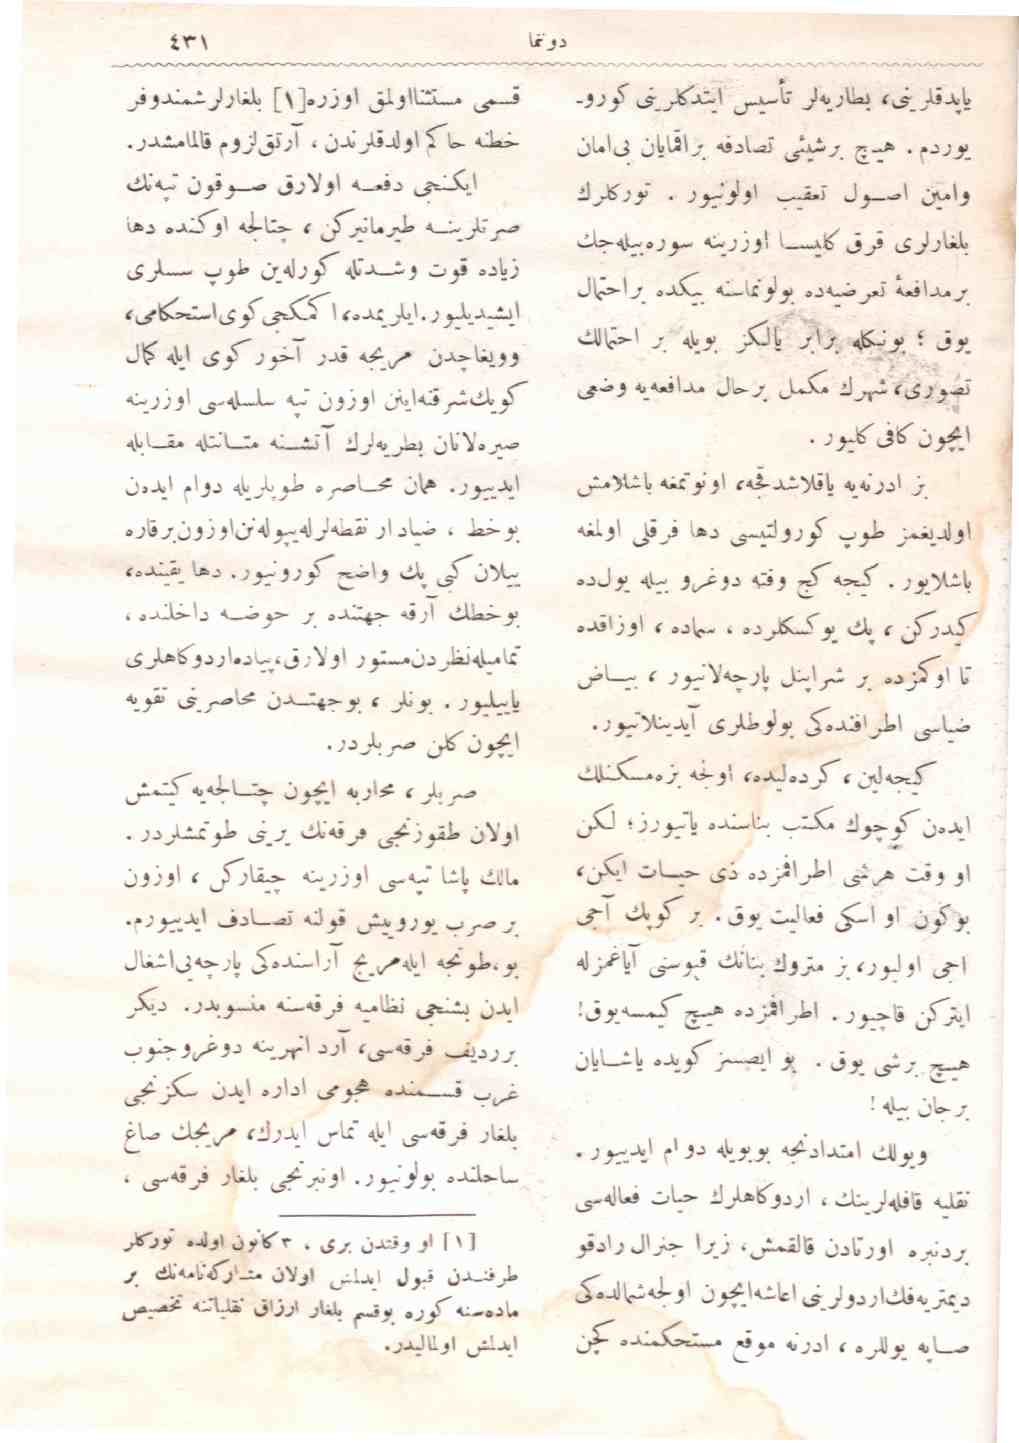 دوننما
٤٣١
ياپدقلرينی، بطاريه‌لر تأسيس ايتدكلرينی كورو-
يوردم . هيچ برشيئی تصادفه براقمايان بی‌امان
وامين اصول تعقيب اولونيور . توركلرك
بلغارلری قرق كليسا اوزرينه سوره‌بيله‌جك
برمدافعهٔ تعرضيه‌ده بولونماسنه بيكده براحتمال
يوق ؛ بونكله برابر يالكز بويله بر احتمالك
تصوری، شهرك مكمل برحال مدافعه‌يه وضعی
ايچون كافی كليور .
بز ادرنه‌يه ياقلاشدقجه، اونوتمغه باشلامش
اولديغمز طوپ كورولتيسی دها فرقلی اولمغه
باشلايور . كيجه كج وقته دوغرو بيله يول‌ده
كيدركن ، پك يوكسكلرده ، سماده ، اوزاقده
تا اوكمزده بر شراپنل پارچه‌لانيور ، بياض
ضياسی اطرافنده‌كی بولوطلری آيدينلاتيور.
كيجه‌لين ، كرده‌ليده، اونجه بزه‌مسكنلك
ايده‌ن كوچوك مكتب بناسنده ياتيورز؛ لكن
او وقت هرشی اطرافمزده ذی حيات ايكن،
بوكون او اسكی فعاليت يوق. بر كوپك آجی
اجی اوليور، بز متروك بنانك قپوسنی آياغمزله
ايتركن قاچيور . اطرافمزده هيچ كيمسه‌يوق!
هيچ برشی يوق . بو ايصسز كويده ياشايان
برجان بيله !
ويولك امتدادنجه بوبويله دوام ايدييور .
نقليه قافله‌لرينك ، اردوكاهلرك حيات فعاله‌سی
بردنبره اورتادن قالقمش، زيرا جنرال رادقو
ديمتريه‌فك‌اردولرينی اعاشه‌ايچون اولجه‌شمالده‌كی
صاپه يوللره ، ادرنه موقع مستحكمنده كچن
قسمی مستثنااولمق اوزره[١] بلغارلرشمندوفر
خطنه حاكم اولدقلرندن ، آرتق‌لزوم قالمامشدر.
ايكنجی دفعه اولارق صوقون تپه‌نك
صرتلرينه طيرمانيركن ، چتالجه اوكنده دها
زياده قوت وشدتله كورله‌ين طوپ سسلری
ايشيديليور.ايلريمده، اكمكجی‌كوی‌استحكامی،
وويغاچدن مريجه قدر آخور كوی ايله كمال
كويك‌شرقنه‌اينن اوزون تپه سلسله‌سی اوزرينه
صيره‌لانان بطريه‌لرك آتشنه متانتله مقابله
ايدييور. همان محاصره طوپلريله دوام ايده‌ن
بوخط ، ضيادار نقطه‌لرله‌ييوله‌نن‌اوزون‌برقاره
ييلان كبی پك واضح كورونيور. دها يقينده،
بوخطك آرقه جهتنده بر حوضه داخلنده ،
تماميله‌نظردن‌مستور اولارق،پياده‌اردوكاهلری
ياپيليور . بونلر ، بوجهتدن محاصرينی تقويه
ايچون كلن صربلردر.
صربلر ، محاربه ايچون چتالجه‌يه كيتمش
اولان طقوزنجی فرقه‌نك يرينی طوتمشلردر .
مالك پاشا تپه‌سی اوزرينه چيقاركن ، اوزون
بر صرب يوروييش قولنه تصادف ايدييورم.
بو،طونجه ايله‌مريج آراسنده‌كی پارچه‌يی‌اشغال
ايدن بشنجی نظاميه فرقه‌سنه منسوبدر. ديكر
بررديف فرقه‌سی، آردا نهرينه دوغروجنوب
غرب قسمنده هجومی اداره ايدن سكزنجی
بلغار فرقه‌سی ايله تماس ايدرك، مريجك صاغ
ساحلنده بولونيور. اونبرنجی بلغار فرقه‌سی ،
[١] او وقتدن بری ، ٣ كانون اولده توركلر
طرفندن قبول ايدلمش اولان متاركه‌نامه‌نك بر
ماده‌سنه كوره بوقسم بلغار ارزاق نقلياتنه تخصيص
ايدلمش اولماليدر.